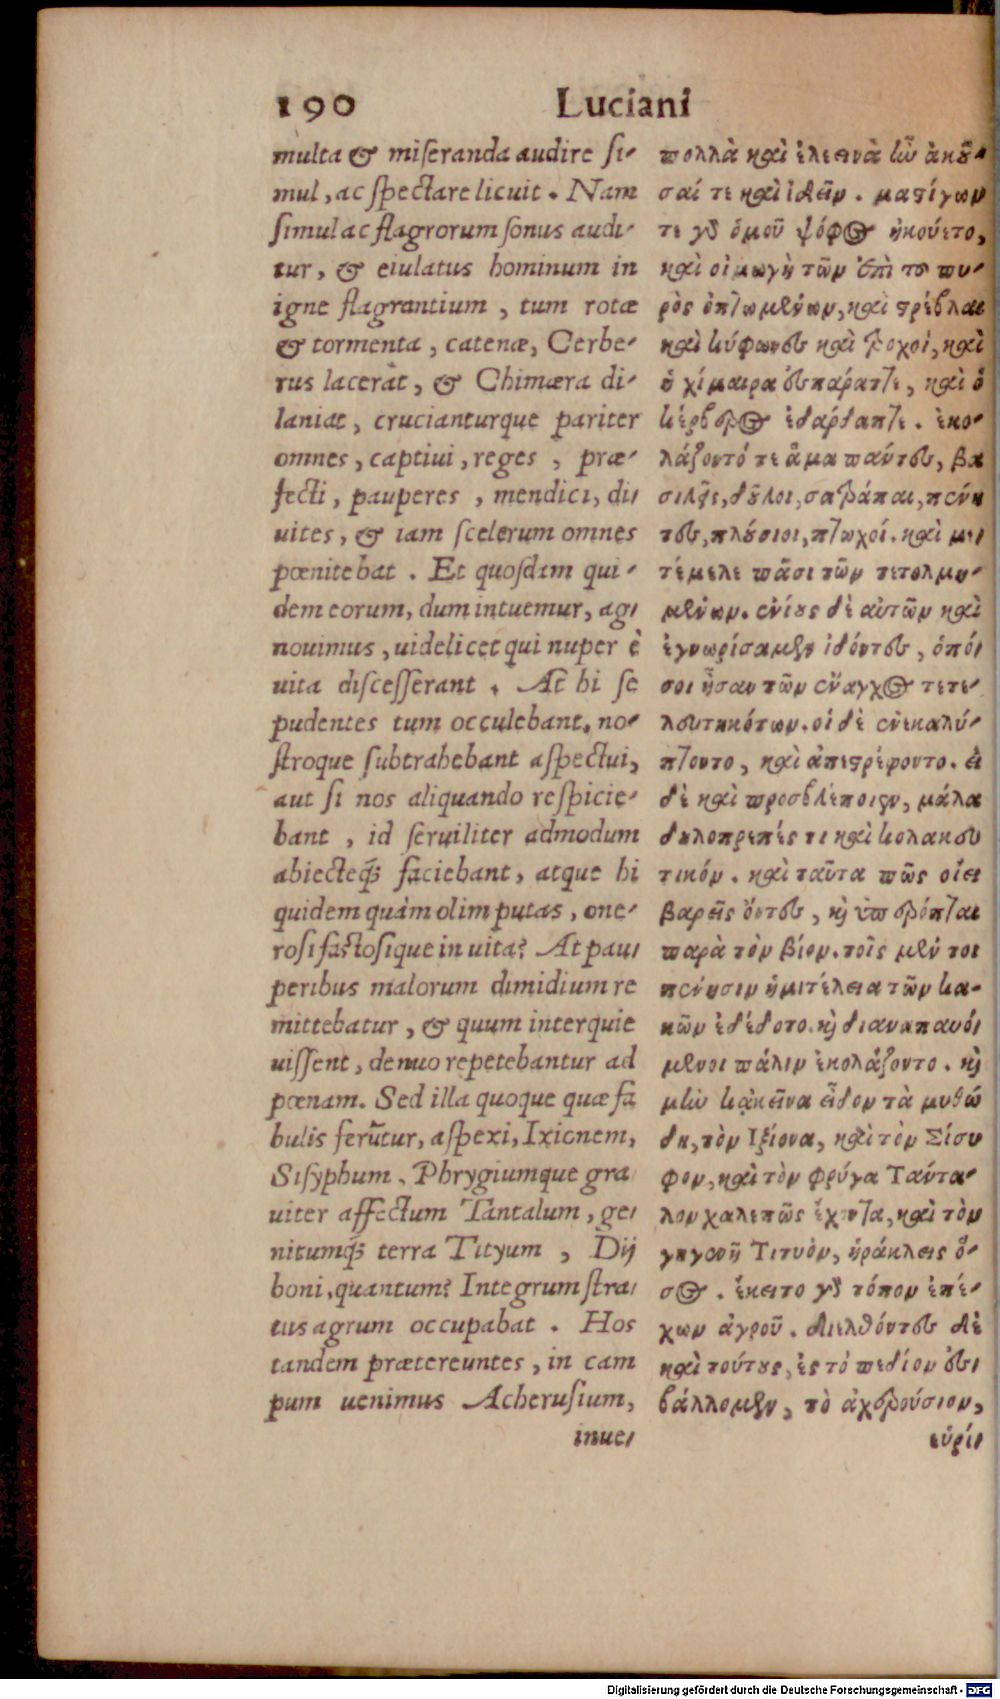 190 Luciani
multa & miſeranda audire ſi-
mul, ac ſpectare licuit. Nam
ſimul ac flagrorum ſonus audi-
tur, & eiulatus hominum in
igne flagrantium, tum rotæ
& tormenta, catenæ, Cerbe-
rus lacerat, & Chimæra di-
laniat, crucianturque pariter
omnes, captiui, reges, præ-
fecti, pauperes, mendici, di-
uites, & iam ſcelerum omnes
pœnitebat. Et quoſdam qui-
dem eorum, dum intuemur, ag-
nouimus, uidelicet qui nuper è
uita diſceſſerant. At hi ſe
pudentes tum occulebant, no-
ſtroque ſubtrahebant aſpectui,
aut ſi nos aliquando reſpicie-
bant, id ſeruiliter admodum
abiecteq́; faciebant, atque hi
quidem quàm olim putas, one-
roſi faſtoſique in uita? At pau-
peribus malorum dimidium re
mittebatur, & quum interquie
uiſſent, denuo repetebantur ad
pœnam. Sed illa quoque quæ fa
bulis ferūtur, aſpexi, Ixionem,
Siſyphum, Phrygiumque gra
uiter affectum Tantalum, ge-
nitumq́; terra Tityum, Dij
boni, quantum? Integrum ſtra-
tus agrum occupabat. Hos
tandem prætereuntes, in cam
pum uenimus Acheruſium,
inue-
πολλὰ καὶ ἐλεεινὰ ἦν ἀκοῦ-
σαί τε καὶ ἰδεῖν. μαστίγων
τε γὰρ ὁμοῦ ψόφος ἠκούετο,
καὶ οἰμωγὴ τῶν ἐπὶ τοῦ πυ-
ρὸς ὀπτωμένων, καὶ στρέβλαι
καὶ κύφωνες καὶ τροχοί, καὶ
ἡ χίμαιρα ἐσπάραττε, καὶ ὁ
κέρβερος ἐδάρδαπτε. ἐκο-
λάζοντό τε ἅμα πάντες, βα
σιλεῖς, δοῦλοι, σατράπαι, πένη
τες, πλούσιοι, πτωχοί. καὶ με-
τέμελε πᾶσι τῶν τετολμη-
μένων. ἐνίους δὲ αὐτῶν καὶ
ἐγνωρίσαμεν ἰδόντες, ὁπό-
σοι ἦσαν τῶν ἔναγχος τετε-
λευτηκότων. οἱ δὲ ἐνεκαλύ-
πτοντο, καὶ ἀπεστρέφοντο. εἰ
δὲ καὶ προσβλέποιεν, μάλα
δουλοπρεπές τι καὶ κολακευ
τικόν. καὶ ταῦτα πῶς οἴει
βαρεῖς ὄντες, καὶ ὑπερόπται
παρὰ τὸν βίον. τοῖς μέν τοι
πένησιν ἡμιτέλεια τῶν κα-
κῶν ἐδέδοτο. καὶ διαναπαυό-
μενοι πάλιν ἐκολάζοντο. καὶ
μὴν κἀκεῖνα εἶδον τὰ μυθώ
δη, τὸν Ιξίονα, καὶ τὸν Σίσυ
φον, καὶ τὸν φρύγα Τάντα-
λον χαλεπῶς ἔχοντα, καὶ τὸν
γηγενῆ Τιτυὸν, ἡράκλεις ὅ-
σος. ἔκειτο γὰρ τόπον ἐπέ-
χων ἀγροῦ. διελθόντες δὲ
καὶ τούτους, ἐς τὸ πεδίον ἐσ-
βάλλομεν, τὸ ἀχερούσιον,
εὑρί-
Digitalisierung gefördert durch die Deutsche Forschungsgemeinschaft - DFG